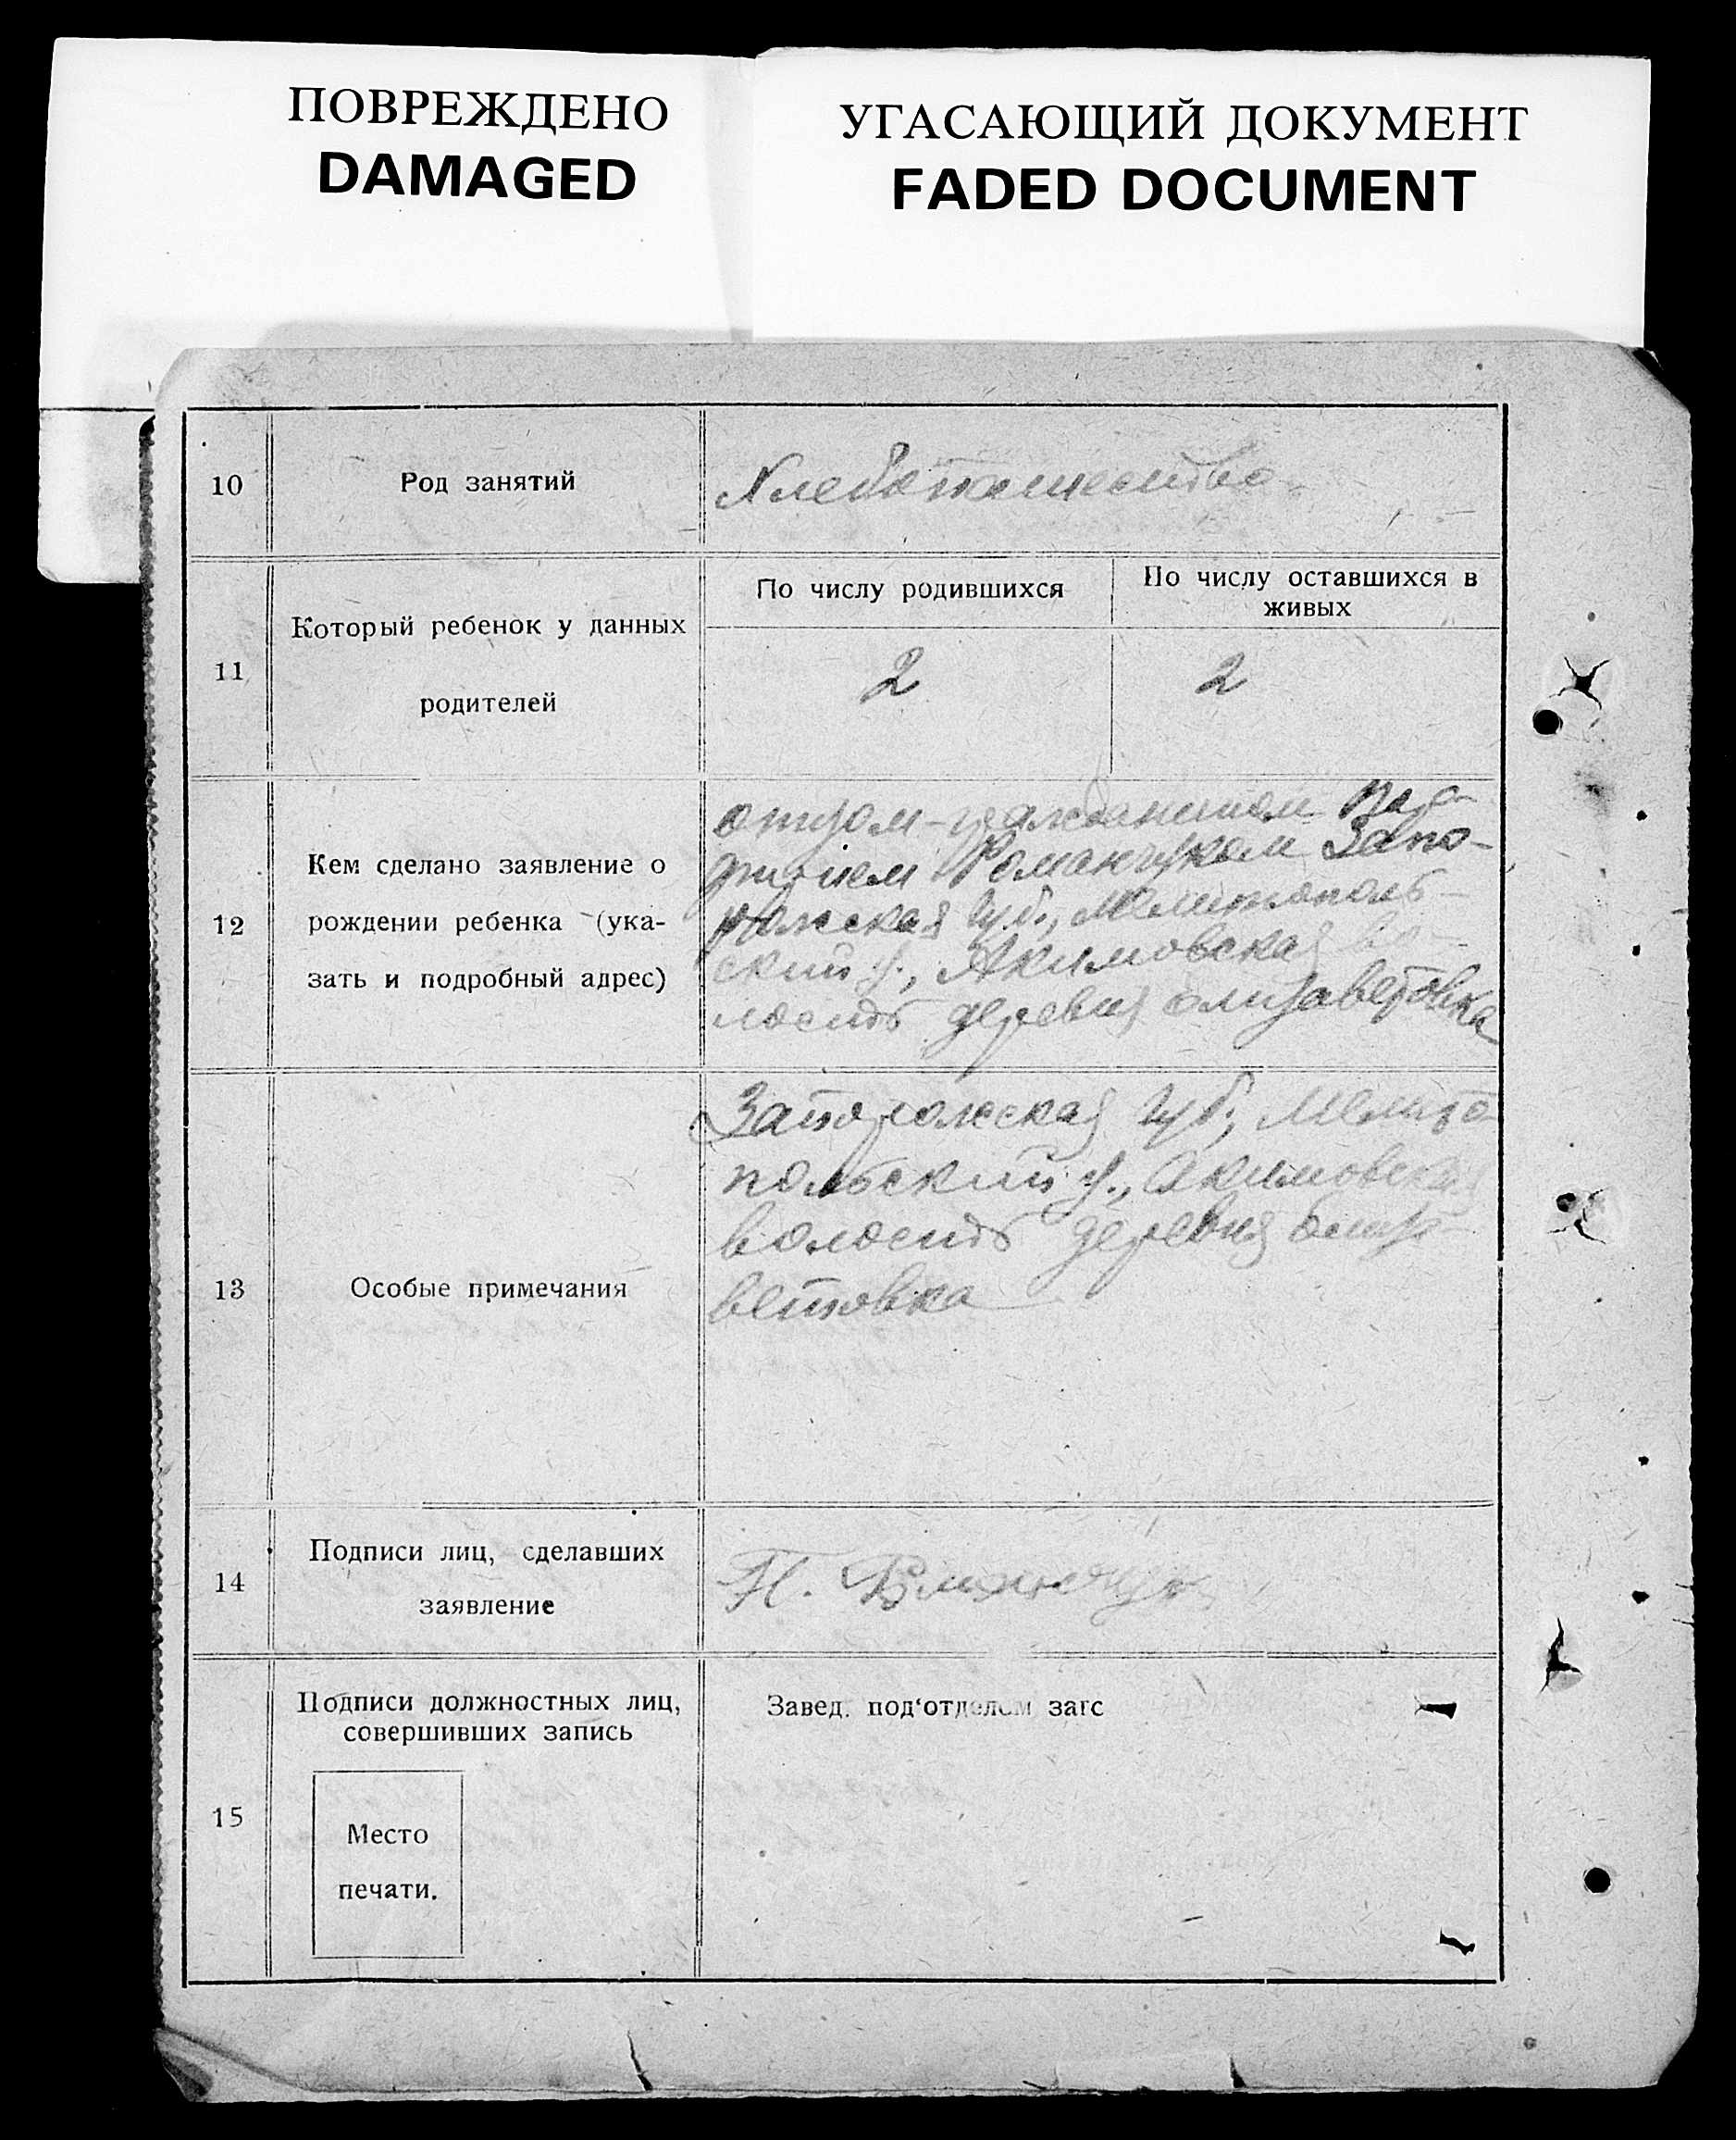 ПОВРЕЖДЕНО
DAMAGED
УГАСАЮЩИЙ ДОКУМЕНТ
FADED DOCUMENT
10
Род занятий
Хлебопашество
11
Который ребенок у данных
родителей
По числу родившихся
2
По числу оставшихся в
живых
2
12
Кем сделано заявление о
рождении ребенка (ука-
зать и подробный адрес)
отцом-гражданином
Романчуком Запо-
рожская губ., Мелитополь-
ский у., Акимовская во-
лость деревня Елизаветовка
13
Особые примечания
Запорожская губ., Мелито-
польский у., Акимовская
волость деревня Елиза-
ветовка
14
Подписи лиц, сделавших
заявление
П.
15
Подписи должностных лиц,
совершивших запись
Место
печати.
Завед. под‘отделом загс